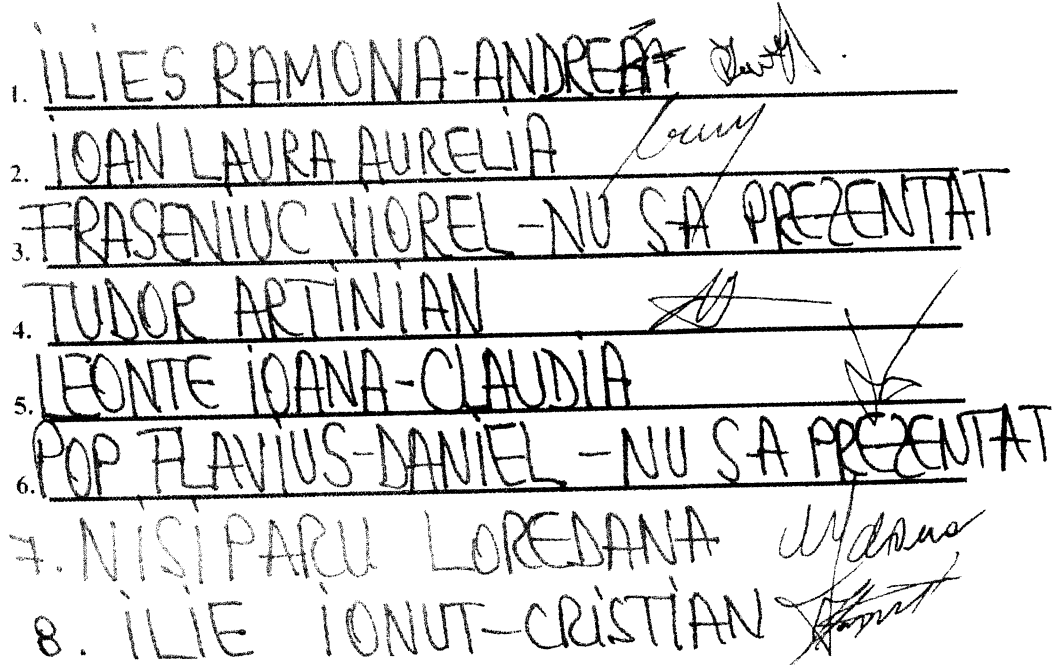 1. ILIES RAMONA-ANDREEA
2. IOAN LAURA AURELIA
3. FRASENIUC VIOREL-NU SA PREZENTAT
4. TUDOR ARTINIAN
5. LEONTE IOANA-CLAUDIA
6. POP FLAVIUS-DANIEL -NU SA PREZENTAT
7. NISIPARU LOREDANA
8. ILIE IONUT-CRISTIAN